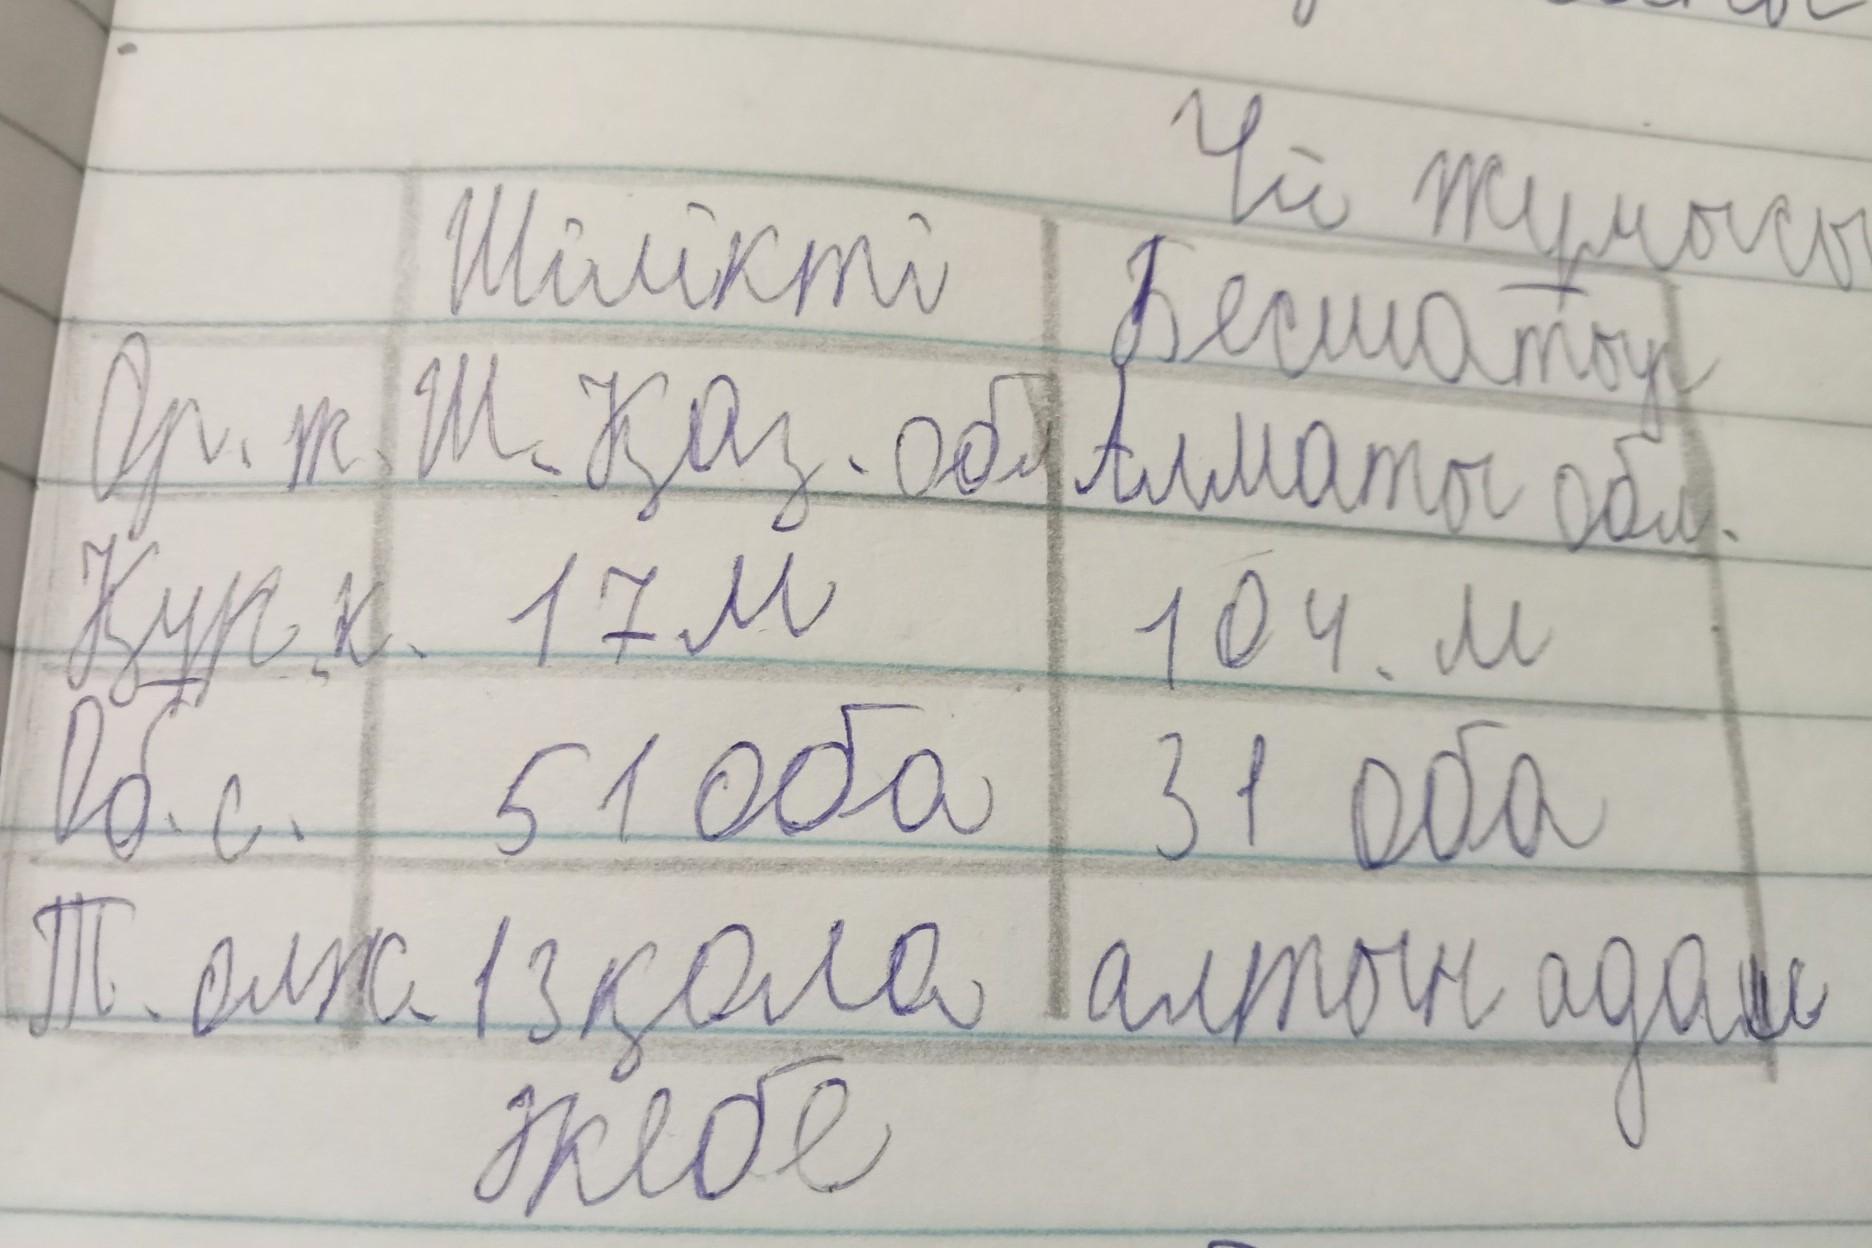 Үй жұмысы
Шілікті Бесшатыр
Ор. ж. Ш. Қаз. обл Алматы обл.
Құр. к. 17 м 104. м
Об. с. 51 оба 31 оба
Т. олж. 13 қола алтын адам
жебе